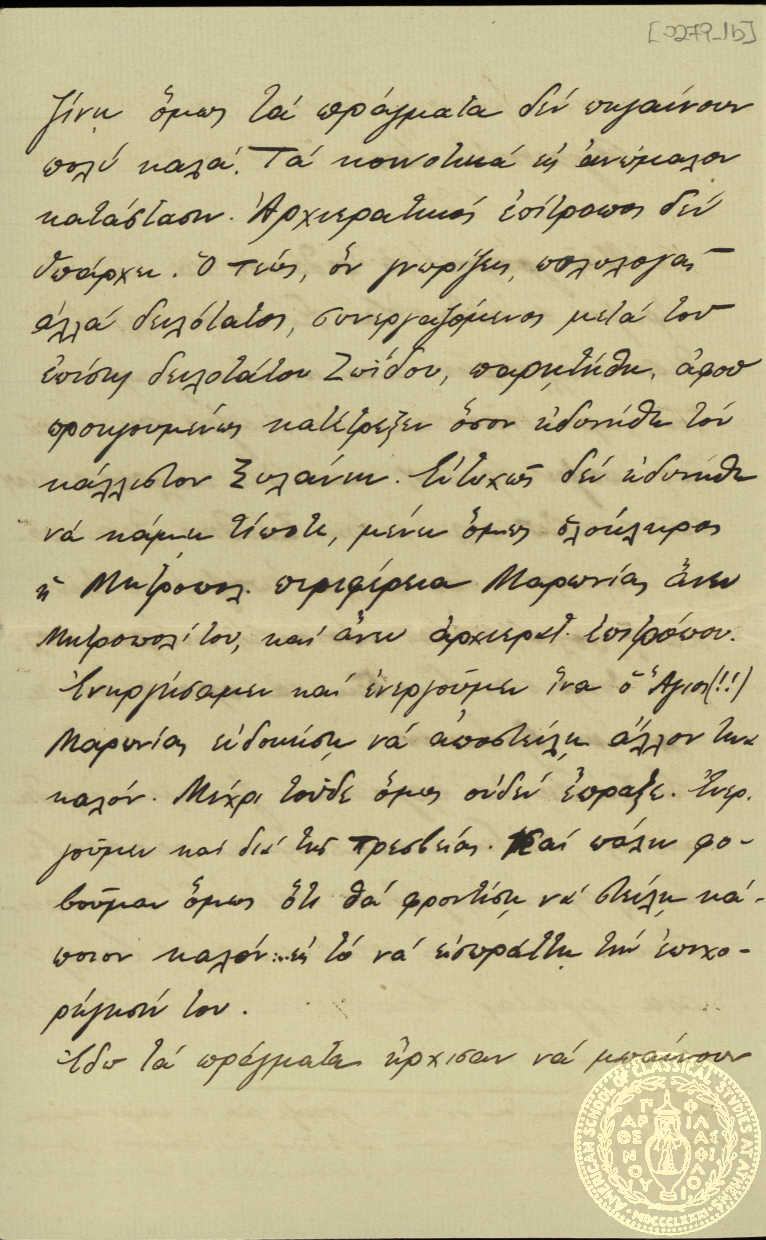 [0279_1b]
γίνῃ ὅμως τά πράγματα δέν πηγαίνουν
πολύ καλά. Τά κοινοτικά εἰς ἀνώμαλον
κατάστασιν. Ἀρχιερατικός ἐπίτροπος δέν
ὑπάρχει. Ὁ τέως, ὅν γνωρίζεις, πολυλογᾶς
ἀλλά δειλότατος, συνεργαζόμενος μετά τοῦ
ἐπίσης δειλοτάτου Ζωΐδου, παρῃτήθη, ἀφοῦ
προηγουμένως κατέτρεξεν ὅσον ἠδυνήθη τόν
κάλλιστον Ξυλάνην. Εὐτυχῶς δέν ἠδυνήθη
νά κάμῃ τίποτε, μένει ὅμως ὁλόκληρος
ἡ Μητροπολ. περιφέρεια Μαρωνίας ἄνευ
Μητροπολίτου, καί ἄνευ ἀρχιερατ. ἐπιτρόπου.
Ἐνηργήσαμεν καί ἐνεργοῦμεν ἵνα ὁ Ἅγιος(!!)
Μαρωνίας εὐδοκήσῃ νά ἀποστείλῃ ἄλλον τινα
καλόν. Μέχρι τοῦδε ὅμως οὐδέν ἔπραξε. Ἐνερ-
γοῦμεν καί διά τῆς Πρεσβείας. Καί πάλιν φο-
βοῦμαι ὅμως ὅτι θά φροντίσῃ νά στείλῃ κά-
ποιον καλόν... εἰς τό νά εἰσπράττῃ τήν ἐπιχο-
ρήγησίν του.
Ἐδῶ τά πράγματα ἤρχισαν νά μπαίνουν
AMERICAN SCHOOL OF CLASSICAL STUDIES AT ATHENS
ΠΑΡΘΕΝΟΥ ΦΙΛΑΣ ΦΙΛΟΙ
MDCCCLXXXI